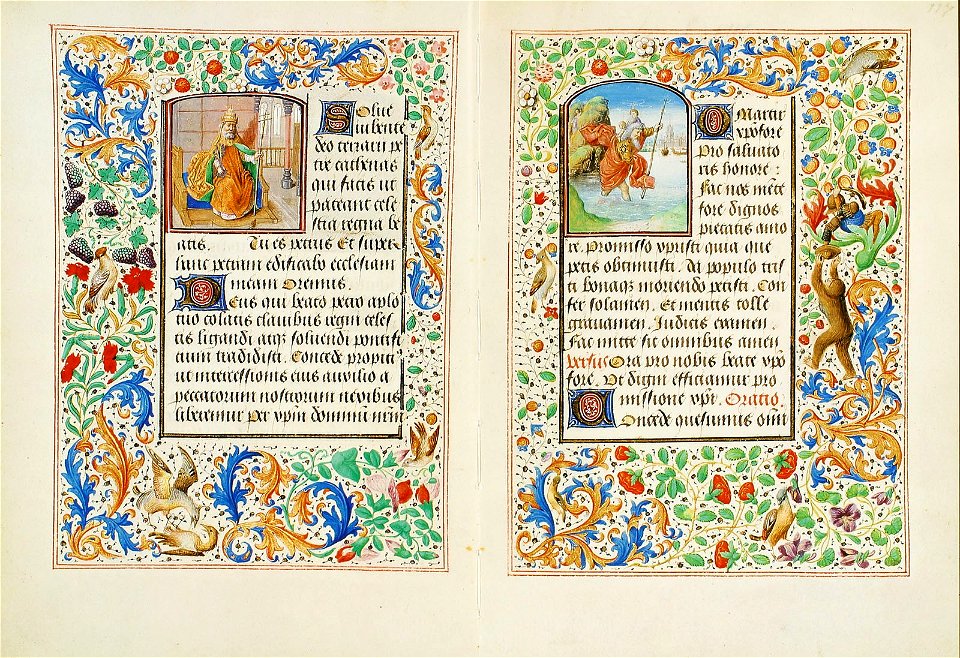 Solue
iubente
deo terraru pe
tre cathenas
qui facis ut
pateant cele
stia regna be
atis. Tu es petrus Et super
hanc petram edificabo ecclesiam
meam Oremus.
Deus qui beato petro aplo
tuo colatis clauibus regni celes
tis ligandi atqz soluendi pontifi
cium tradidisti. Concede propiti
ut intercessionis eius auxilio a
peccatorum nostrorum nexibus
liberemur Per xpm dominu nrm
O Martir
xpofore
Pro saluato
ris honore :
Fac nos mete
fore dignos
pietatis amo
re. Promisso xpisti quia que
petis obtinuisti. Da populo tris
ti bonaqz moriendo petisti. Con
fer solamen. Et mentis tolle
grauamen. Iudicis examen.
Fac mitte sit omnibus amen
Versus Ora pro nobis beate xpo
fore. Vt digni efficiamur pro
missione xpi. Oratio.
Concede quesumus omi